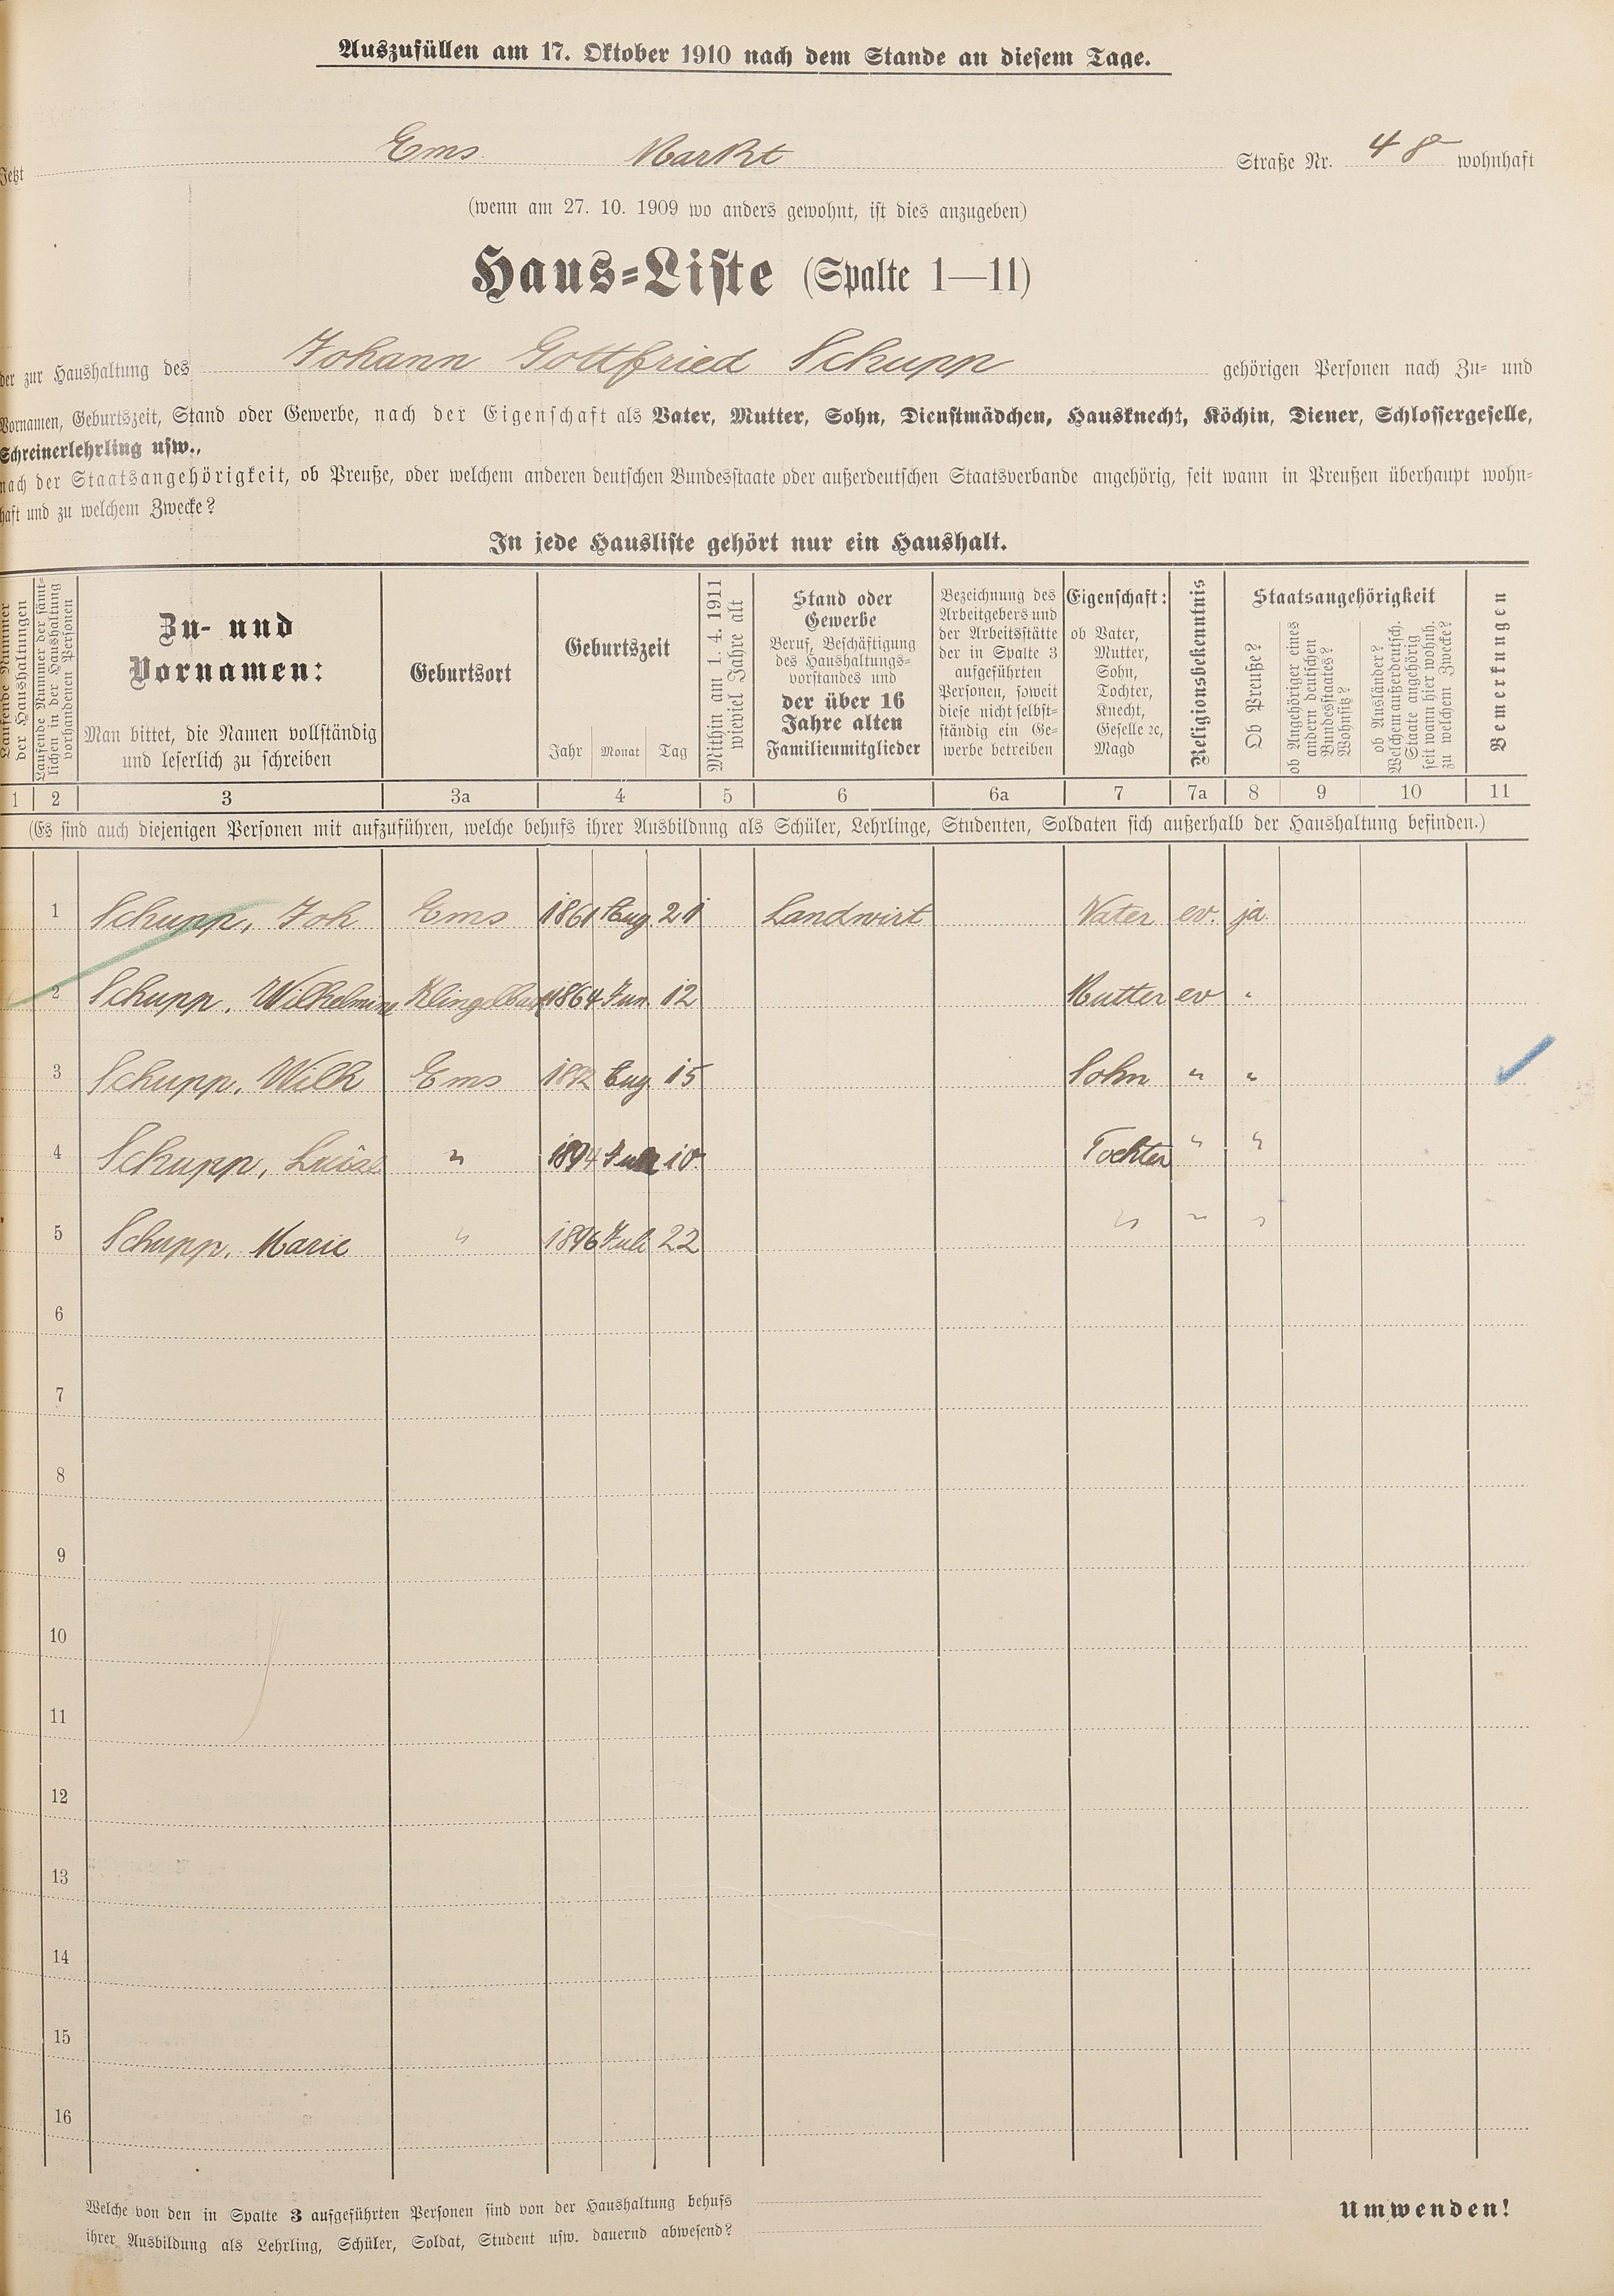 Auszufüllen am 17. Oktober 1910 nach dem Stande an diesem Tage.
Jetzt Ems Markt Straße Nr. 48 wohnhaft
(wenn am 27. 10. 1909 wo anders gewohnt, ist dies anzugeben)
Haus-Liste (Spalte 1—11)
der zur Haushaltung des Johann Gottfried Schupp gehörigen Personen nach Zu- und
Vornamen, Geburtszeit, Stand oder Gewerbe, nach der Eigenschaft als Vater, Mutter, Sohn, Dienstmädchen, Hausknecht, Köchin, Diener, Schlossergeselle,
Schreinerlehrling usw.,
nach der Staatsangehörigkeit, ob Preuße, oder welchem anderen deutschen Bundesstaate oder außerdeutschen Staatsverbande angehörig, seit wann in Preußen überhaupt wohn-
haft und zu welchem Zwecke?
In jede Hausliste gehört nur ein Haushalt.
Laufende Nummer
der Haushaltungen
Laufende Nummer der sämt-
lichen in der Haushaltung
vorhandenen Personen
Zu- und
Vornamen:
Man bittet, die Namen vollständig
und leserlich zu schreiben
Geburtsort
Geburtszeit
Jahr Monat Tag
Mithin am 1. 4. 1911
wieviel Jahre alt
Stand oder
Gewerbe
Beruf, Beschäftigung
des Haushaltungs-
vorstandes und
der über 16
Jahre alten
Familienmitglieder
Bezeichnung des
Arbeitgebers und
der Arbeitsstätte
der in Spalte 3
aufgeführten
Personen, soweit
diese nicht selbst-
ständig ein Ge-
werbe betreiben
Eigenschaft:
ob Vater,
Mutter,
Sohn,
Tochter,
Knecht,
Geselle ec,
Magd
Religionsbekenntnis
Staatsangehörigkeit
Ob Preuße?
ob Angehöriger eines
andern deutschen
Bundesstaates?
Wohnsitz?
ob Ausländer?
Welchem außerdeutsch.
Staate angehörig
seit wann hier wohnh.
zu welchem Zwecke?
Bemerkungen
1 2 3 3a 4 5 6 6a 7 7a 8 9 10 11
(Es sind auch diejenigen Personen mit aufzuführen, welche behufs ihrer Ausbildnng als Schüler, Lehrlinge, Studenten, Soldaten sich außerhalb der Haushaltung befinden.)
1 Schupp, Joh Ems 1861 Aug. 21 Landwirt Vater ev. ja.
2 Schupp, Wilhelmine Klingelbach 1864 Jun. 12 Mutter ev "
3 Schupp, Wilh Ems 1892 Aug. 15 Sohn " "
4 Schupp, Luise " 1894 10 Tochter " "
5 Schupp, Marie " 1896 Juli 22 " " "
6
7
8
9
10
11
12
13
14
15
16
Welche von den in Spalte 3 aufgeführten Personen sind von der Haushaltung behufs
ihrer Ausbildung als Lehrling, Schüler, Soldat, Student usw. dauernd abwesend?
Umwenden!